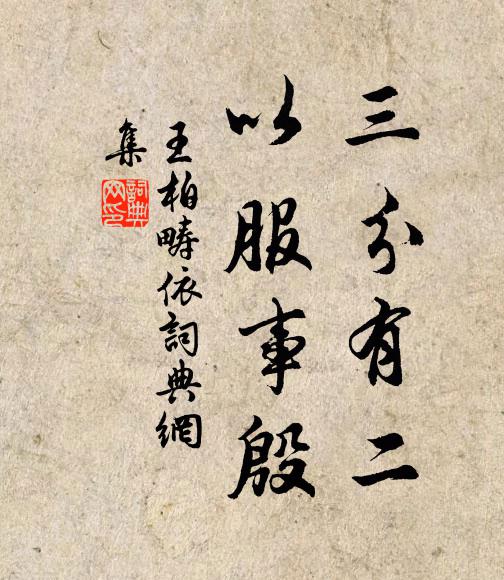 三分有二
以服事殷
王柏疇依詞典網
集
詞典
网印